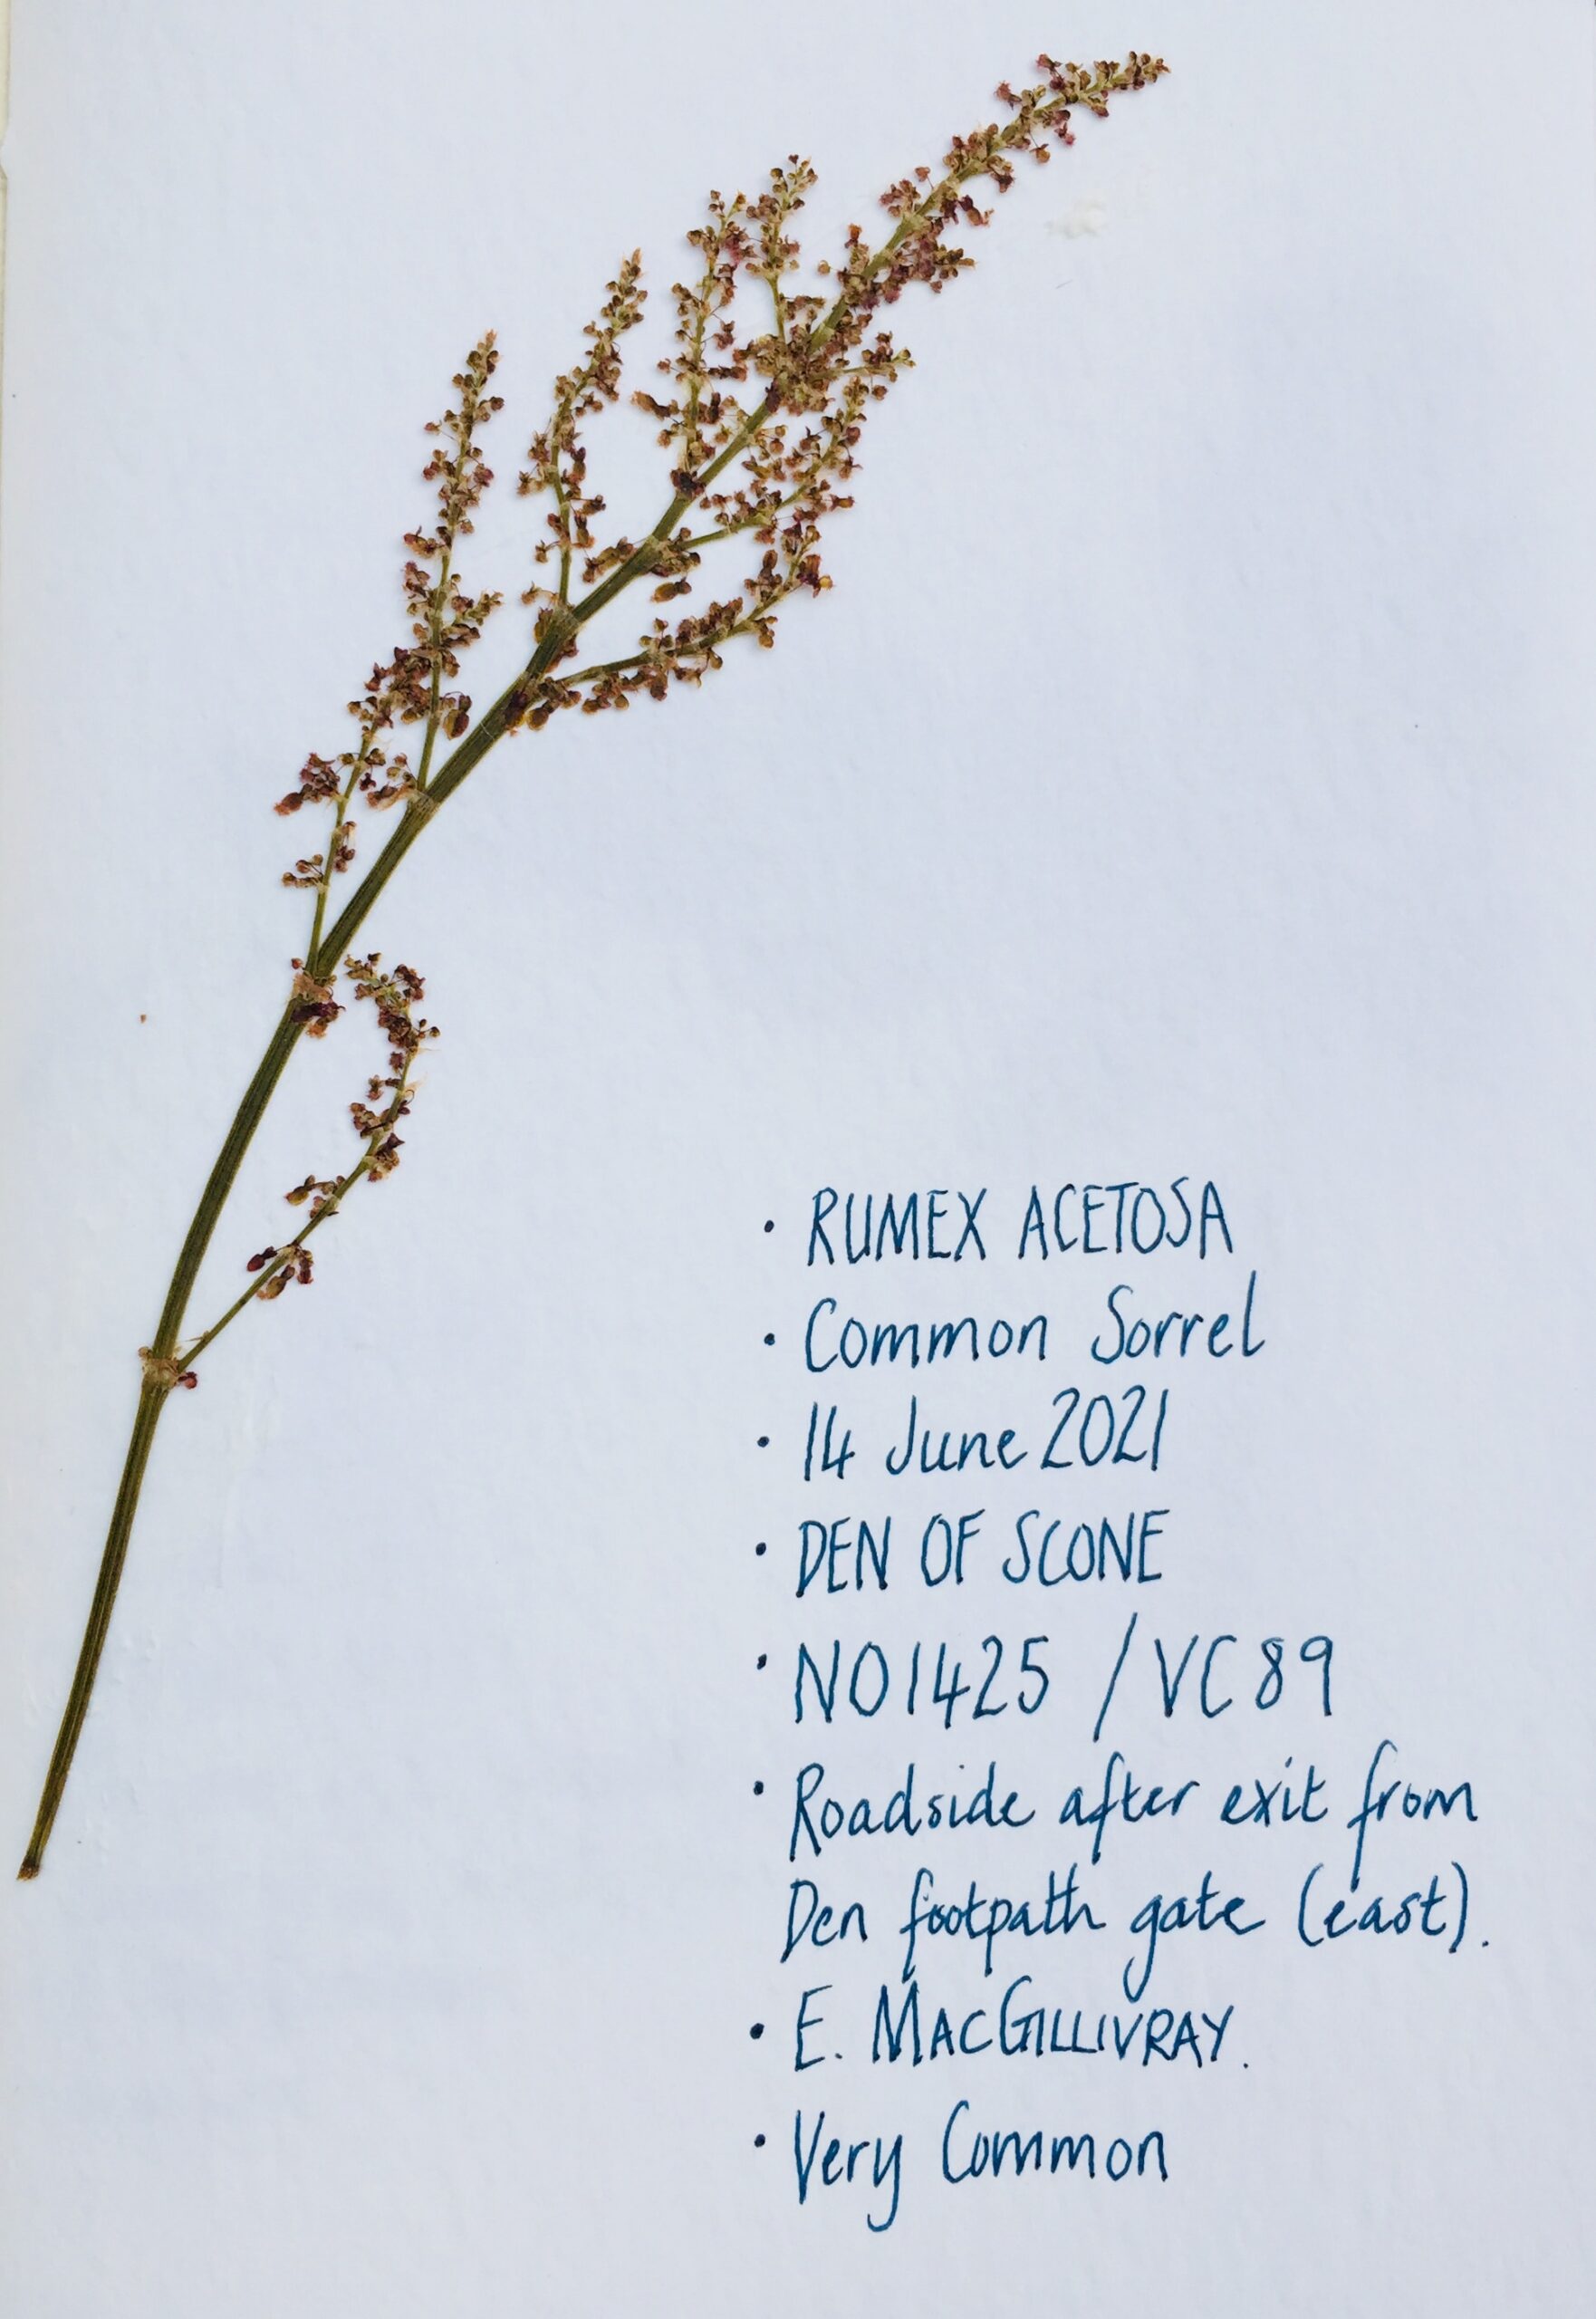 · RUMEX ACETOSA
· Common Sorrel
· 14 June 2021
· DEN OF SCONE
· NO1425 / VC89
· Roadside after exit from
Den footpath gate (east).
· E. MACGILLIVRAY.
· Very Common